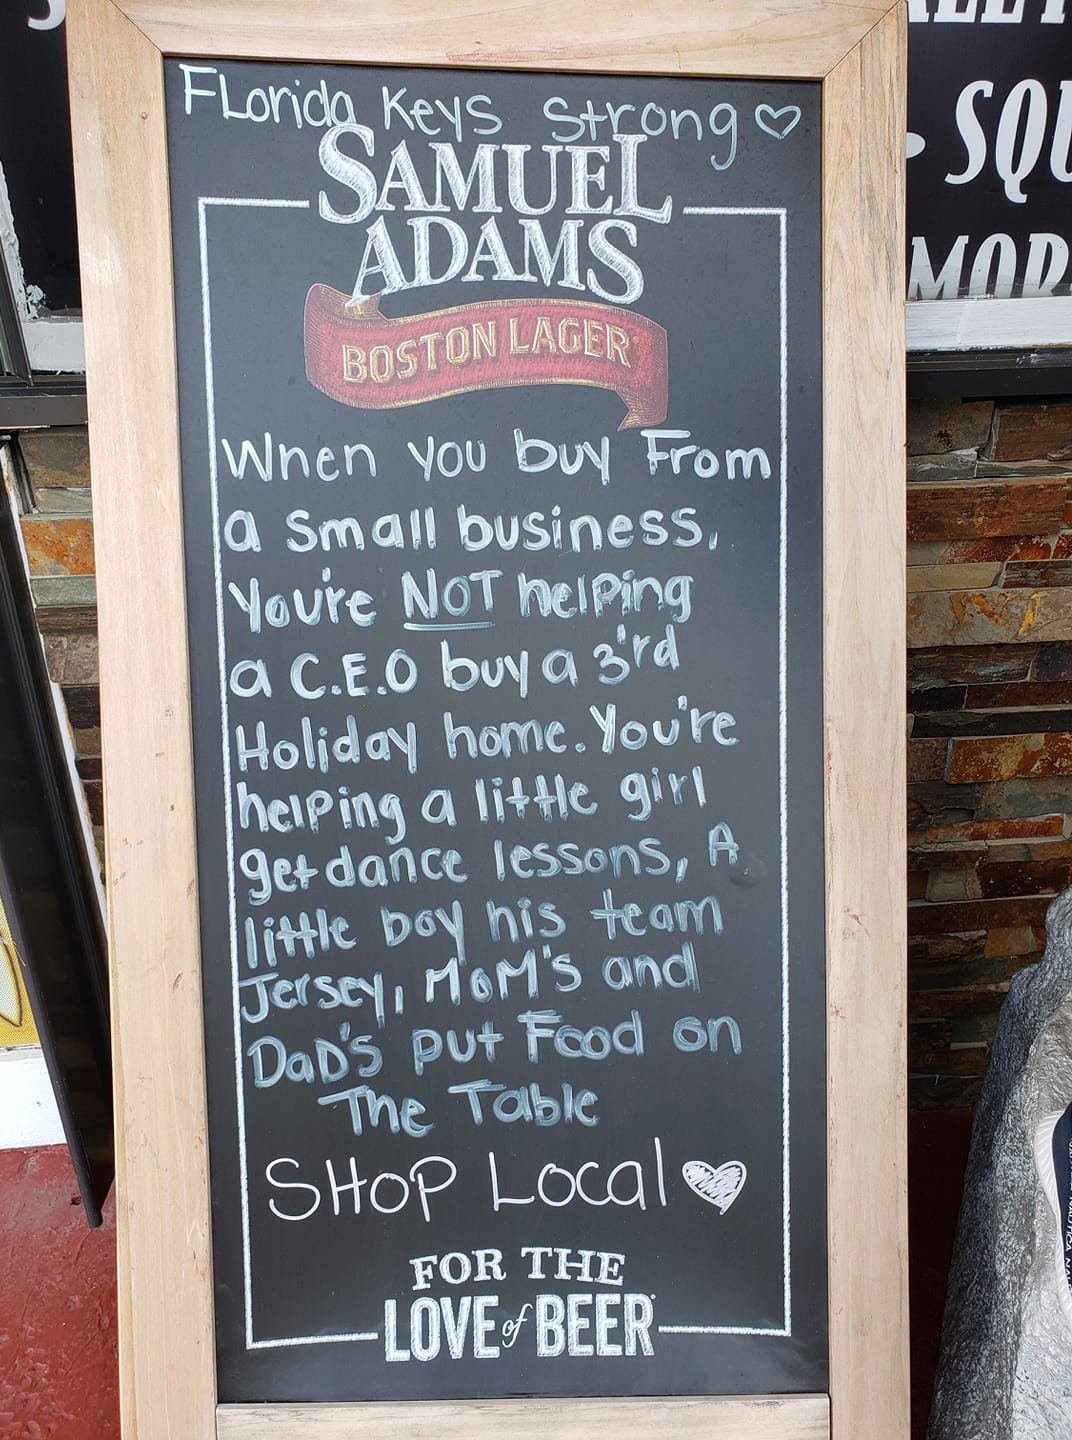 Florida Keys Strong
SAMUEL
ADAMS
BOSTON LAGER
When you buy From
a small business,
You're NOT helping
a C.E.O buy a 3'rd
Holiday home. You're
helping a little girl
get dance lessons, A
little boy his team
Jersey, MoM's and
DaD's put Food on
The Table
SHOP Local
FOR THE
LOVE of BEER
SQU
MOR